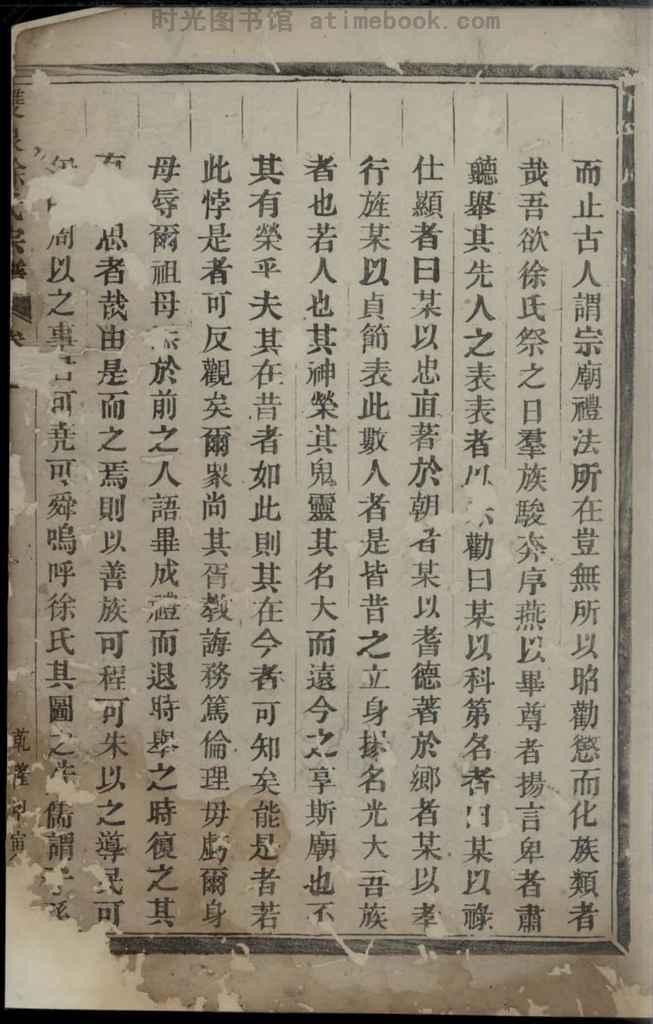 时光图书馆 atimebook.com
而止古人謂宗廟禮法所在豈無所以昭勸懲而化族類者
哉吾欲徐氏祭之日羣族駿奔序燕以畢尊者揚言卑者肅
聽舉其先人之表表者以 勸曰某以科第名者曰某以祿
仕顯者曰某以忠直著於朝者某以耆德著於鄉者某以孝
行旌某以貞節表此數人者是皆昔之立身揚名光大吾族
者也若人也其神榮其鬼靈其名大而遠今之享斯廟也不
其有榮乎夫其在昔者如此則其在今者可知矣能是者若
此悖是者可反觀矣爾衆尚其胥教誨務篤倫理毋虧爾身
母辱爾祖母 於前之人語畢成禮而退時舉之時復之其
者哉由是而之焉則以善族可程可朱以之導民可
以之事君可堯可舜嗚呼徐氏其圖之 儒謂
雙泉徐氏宗譜 卷一
乾隆甲寅